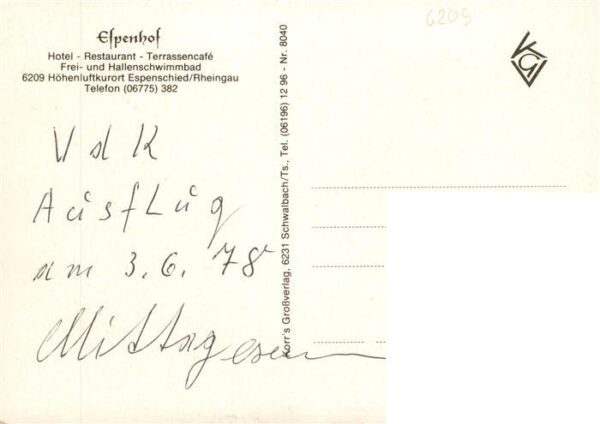 Espenhof
Hotel - Restaurant - Terrassencafé
Frei- und Hallenschwimmbad
6209 Höhenluftkurort Espenschied/Rheingau
Telefon (06775) 382
VdK
Ausflug
am 3.6.78
Mittagessen
Korr's Großverlag, 6231 Schwalbach/Ts., Tel. (06196) 12 96 - Nr. 8040
6209
KGV